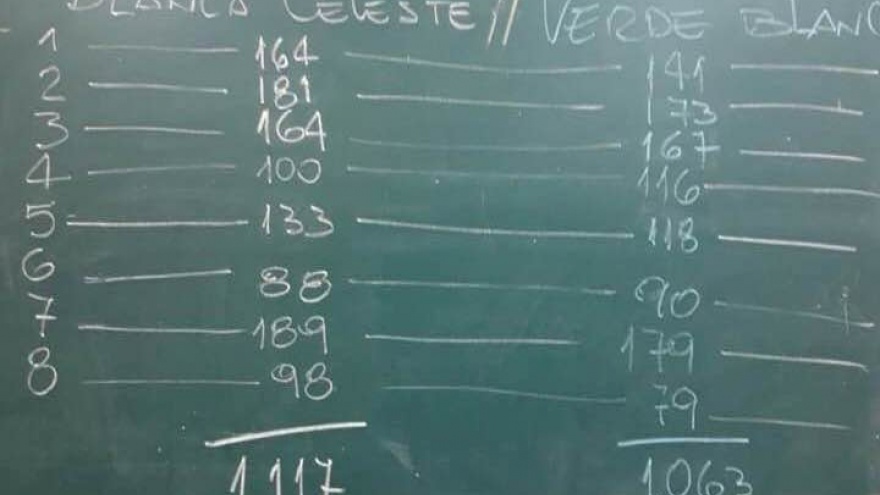 BLANCA CELESTE // VERDE BLANC
1 164 141
2 181 173
3 164 167
4 100 116
5 133 118
6 88 90
7 189 179
8 98 79
1117 1063